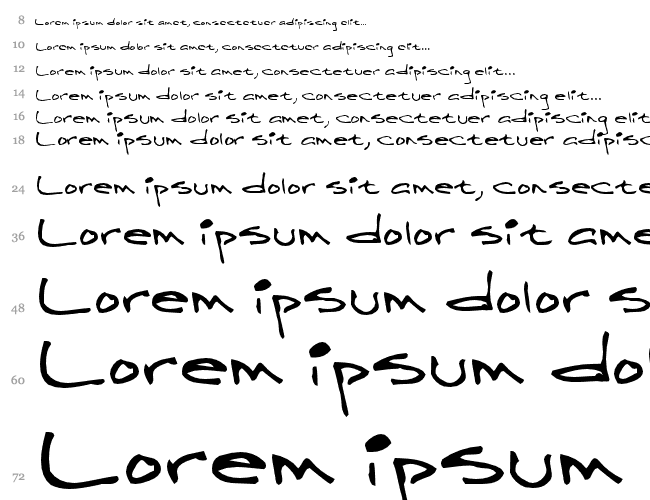 8 Lorem ipsum dolor sit amet, consectetuer adipiscing elit...
10 Lorem ipsum dolor sit amet, consectetuer adipiscing elit...
12 Lorem ipsum dolor sit amet, consectetuer adipiscing elit...
14 Lorem ipsum dolor sit amet, consectetuer adipiscing elit...
16 Lorem ipsum dolor sit amet, consectetuer adipiscing elit
18 Lorem ipsum dolor sit amet, consectetuer adipisc
24 Lorem ipsum dolor sit amet, consecte
36 Lorem ipsum dolor sit ame
48 Lorem ipsum dolor s
60 Lorem ipsum do
72 Lorem ipsum